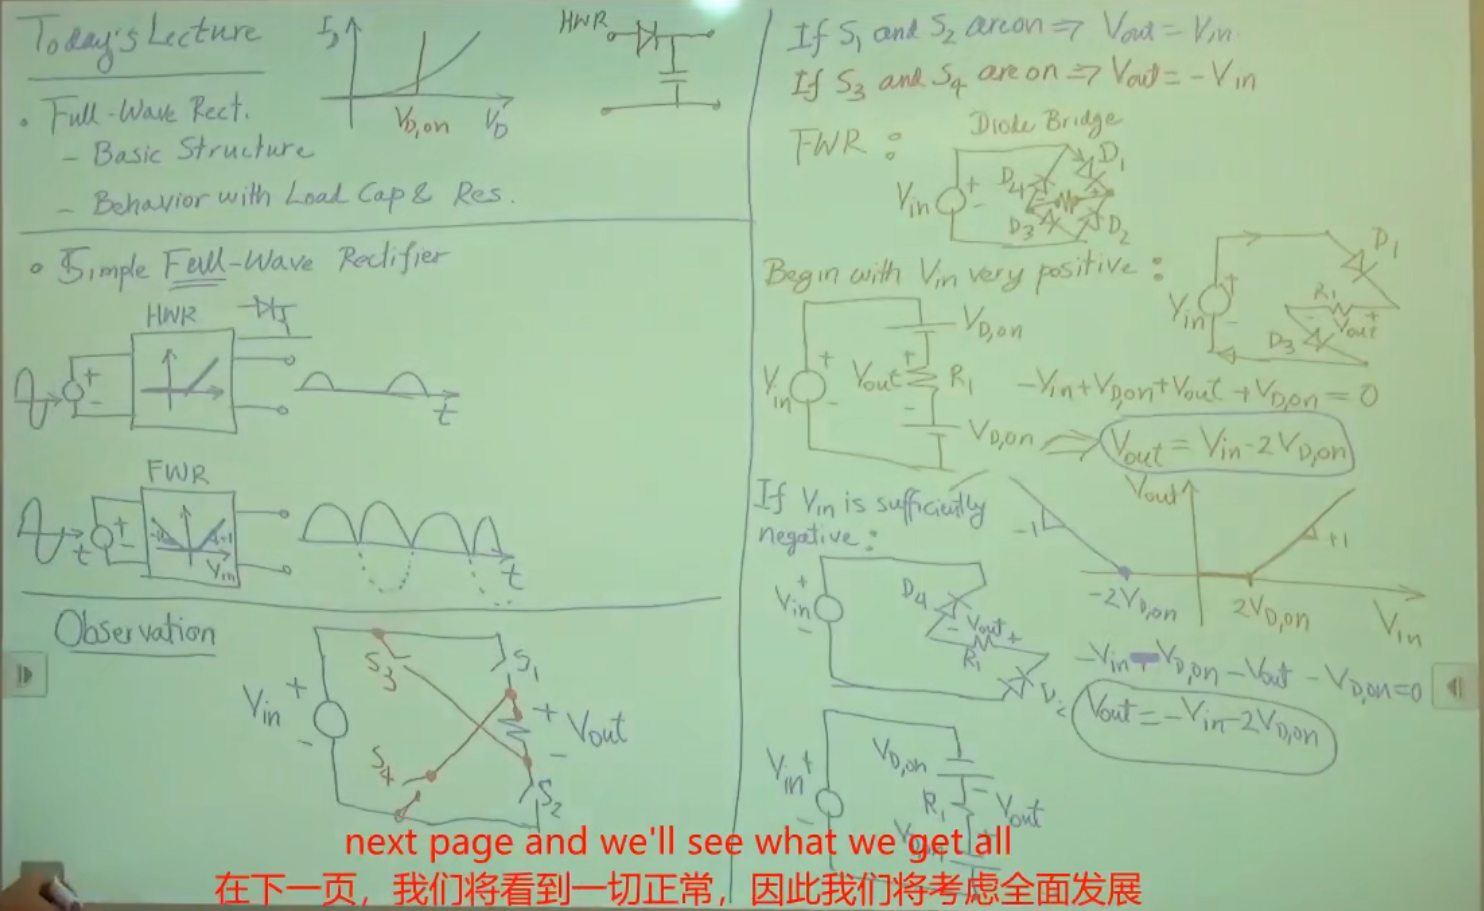 Today's Lecture
• Full-Wave Rect.
- Basic Structure
- Behavior with Load Cap & Res.
I_D
V_D,on
V_D
HWR
• Simple Full-Wave Rectifier
HWR
+
-
t
FWR
t
+
-
+1
Vin
t
Observation
Vin
+
-
S3
S1
S4
S2
+
Vout
-
If S1 and S2 are on ⇒ Vout = Vin
If S3 and S4 are on ⇒ Vout = -Vin
FWR :
Diode Bridge
Vin
+
-
D4
D1
D3
D2
Begin with Vin very positive :
Vin
+
-
V_D,on
Vout
+
-
R1
V_D,on
Vin
+
-
D1
R1
- Vout +
D3
-Vin + V_D,on + Vout + V_D,on = 0
⇒ Vout = Vin - 2V_D,on
If Vin is sufficiently
negative :
Vout
-1
+1
-2V_D,on
2V_D,on
Vin
Vin
+
-
D4
- Vout +
R1
-Vin - V_D,on - Vout - V_D,on = 0
Vout = -Vin - 2V_D,on
Vin
+
-
V_D,on
R1
-
Vout
next page and we'll see what we get all
在下一页，我们将看到一切正常，因此我们将考虑全面发展